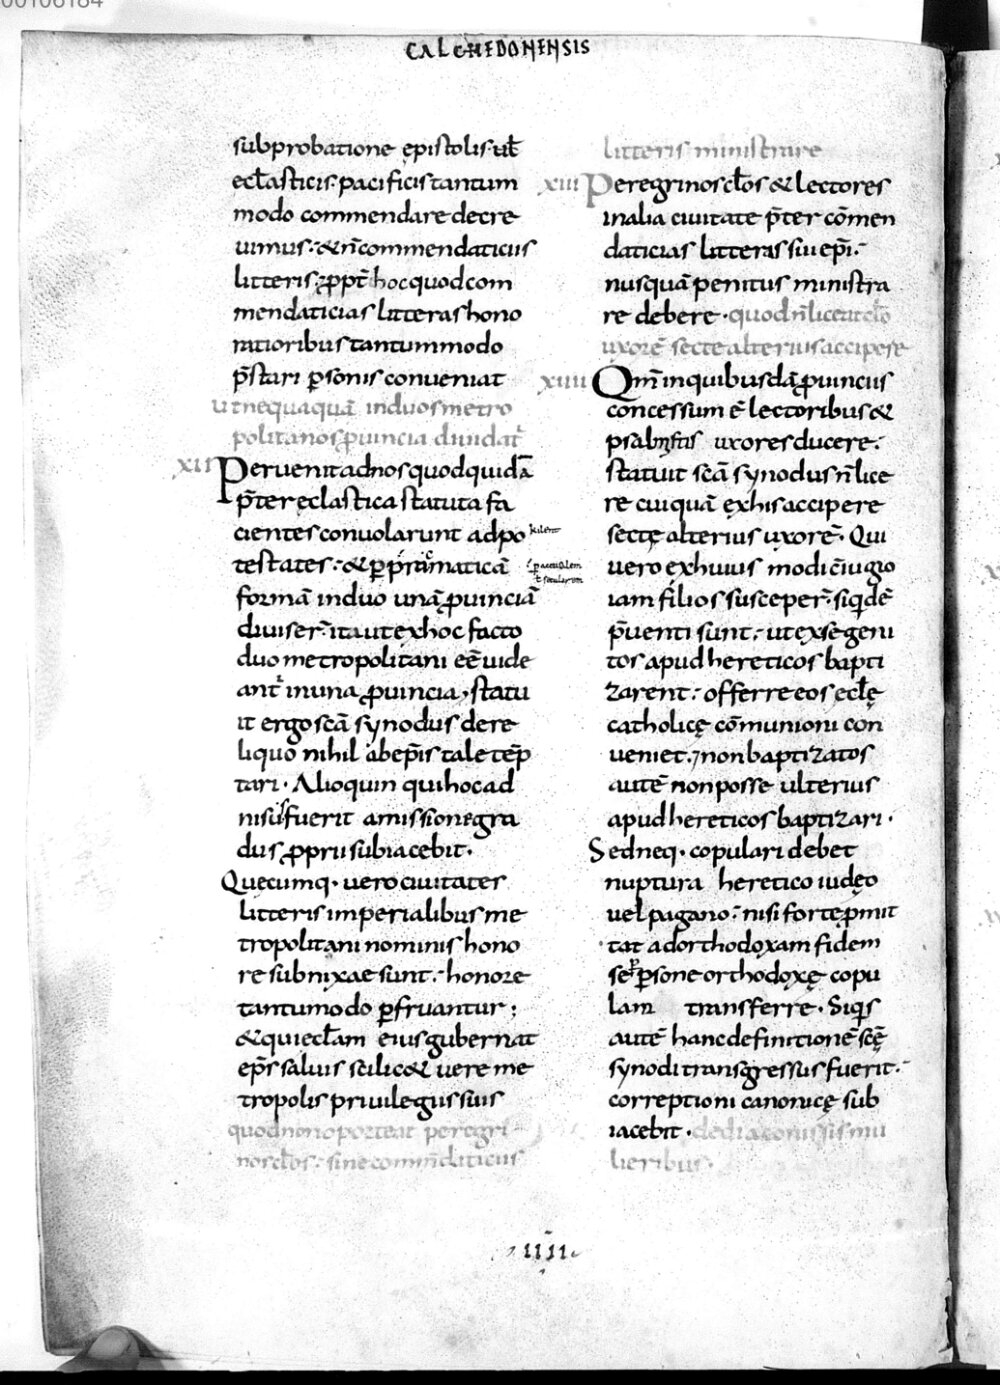 00106184
CALCHEDONENSIS
sub probatione epistolis· ut
ecłasticis· pacificis tantum
modo commendare decre
uimus· & n̄ commendaticiis
litteris· ꝓpt̄ hoc quod com
mendaticias litteras hono
ratioribus tantummodo
p̄stari ꝑsonis conueniat
Ut nequaquā in duos metro
politanos ꝓuincia diuidat᷑
XII Peruenit ad nos quod quidā
p̄ter ęclastica statuta fa
cientes conuolarunt ad po
testates· & ꝑ pragmaticā
formā in duo unā ꝓuinciā
diuiser̄· ita ut ex hoc facto
duo metropolitani eē uide
ant᷑ in una ꝓuincia, statu
it ergo scā synodus de re
liquo nihil ab ep̄is tale tēp
tari· Alioquin qui hoc ad
nisus fuerit amissione gra
dus ꝓprii subiacebit·
Quęcumq· uero ciuitates
litteris imperialibus me
tropolitani nominis hono
re subnixae sunt· honore
tantumodo ꝑfruantur;
& qui ecłam eius gubernat
ep̄s saluis scilic& uere me
tropolis priuilegiis suis
quod non oporteat peregri
nos cłos· sine com̄ndaticiis
litteris ministrare
XIII Peregrinos cłos & lectores
in alia ciuitate p̄ter cōmen
daticias litteras sui ep̄i·
nusquā penitus ministra
re debere· quod n̄ liceat cło
uxorē secte alterius accipere
XIIII Qm̄ in quibusdā ꝓuinciis
concessum ē lectoribus &
psalmistis uxores ducere·
statuit scā synodus n̄ lice
re cuiquā ex his accipere
sectę alterius uxorē· Qui
uero ex huius modi cōiugio
iam filios susceper̄· siquidē
p̄uenti sunt· ut ex se geni
tos apud hereticos bapti
zarent· offerre eos ecłę
catholicę cōmunioni con
ueniet· non baptizatos
autē non posse ulterius
apud hereticos baptizari·
Sed neq· copulari debet
nuptura heretico iudęo
uel pagano· nisi forte ꝓmit
tat ad orthodoxam fidem
se ꝑsone orthodoxę copu
lam transferre· Siquis
autē hanc definitionē scę
synodi transgressus fuerit·
correptioni canonicę sub
iacebit· de diaconissis mu
lieribus·
IIII